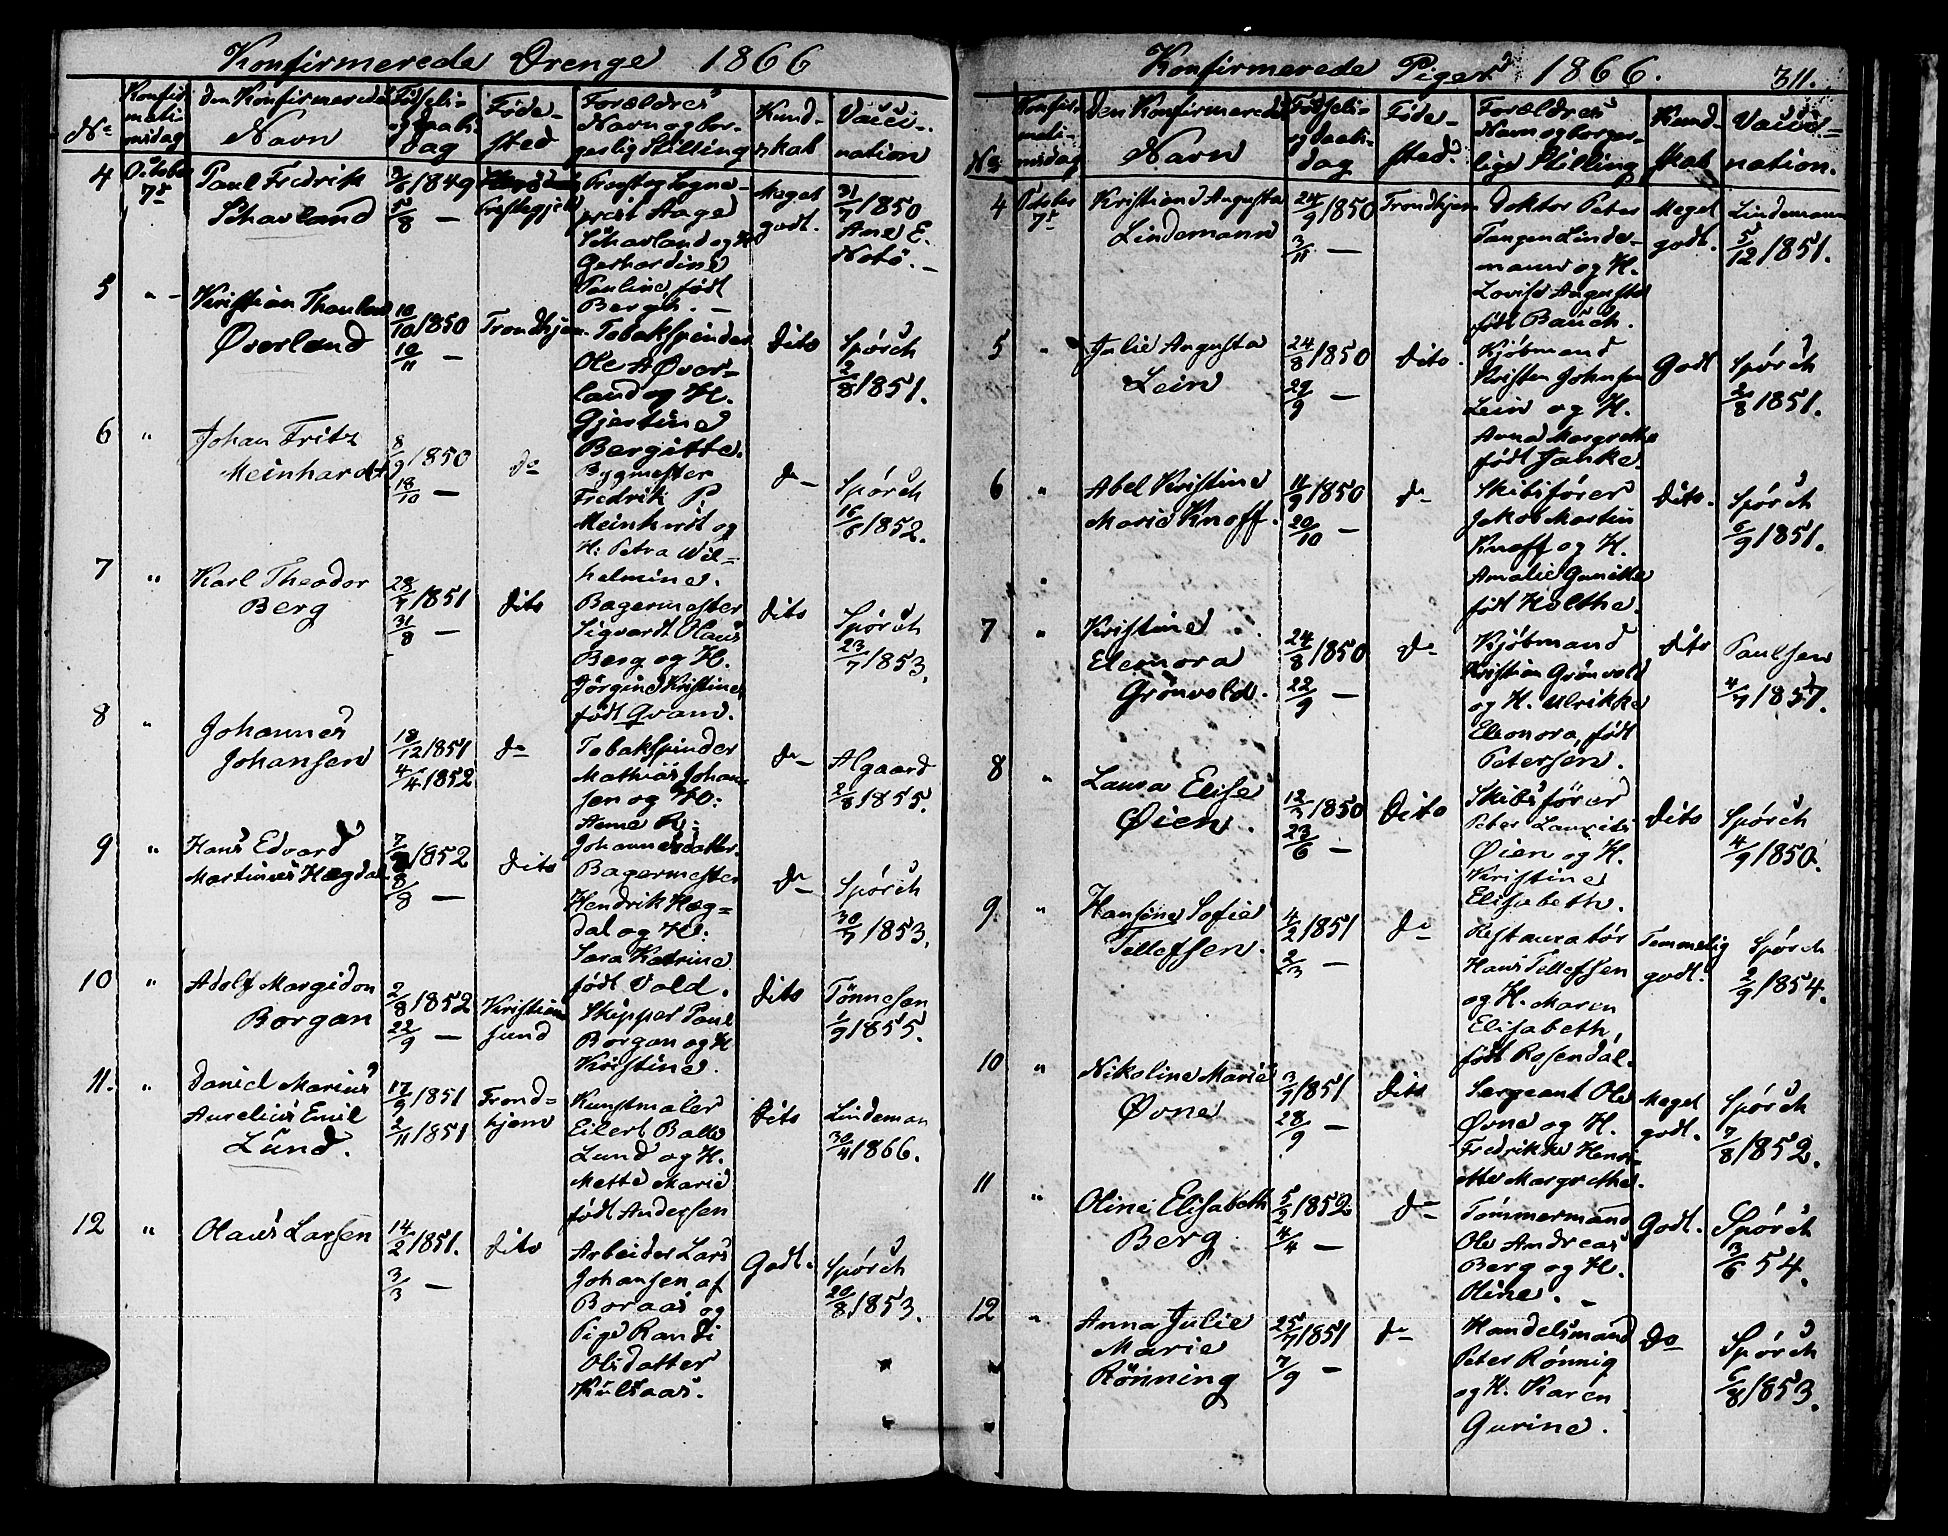 Konfirmerede Drenge 1866
No
Konfir
mati-
onsdag
den Konfirmeredes
Navn
Fødsels-
og Daabs-
dag
Føde-
sted
Forældres
Navn og bor-
gerlig Stilling
Kund-
skab
Vacci-
nation
4
October
7de
Paul Fredrik
Schavland
9/6 1849
5/8 —
Præstegjeld
Provst og Sogne-
præst Aage
Schavland og H.
Gerhardine
Pauline født
Bergh. —
Meget
godt.
31/7 1850
Ane E.
Notø. —
5
"
Kristian Thaulow
Øverland
10/10 1850
10/11 —
Trondhjem
Tobakspinder
Ole A Øver-
land og H.
Gjertine
Bergitte.
dito
Spørch
2/8 1851.
6
"
Johan Fritz
Meinhardt
8/9 1850
18/10 —
do
Bygmester
Fredrik P.
Meinhardt og
H: Petra Wil-
helmine.
do
Spørch
16/6 1852.
7
"
Karl Theodor
Berg
28/7 1851
31/8 —
dito
Bagermester
Sigvardt Claus
Berg og H.
Jørgine Kristine
født Qvam.
dito
Spørch
23/7 1853.
8
"
Johannes
Johansen
18/12 1851
4/4 1852
do
Tobakspinder
Mathias Johan-
sen og H:
Anne R:
Johannesdatter.
do
Algaard
2/8 1855.
9
"
Hans Edvard
Martinus Hægdal
7/2 1852
8/8 —
dito
Bagermester
Hendrik Hæg-
dal og H:
Sara Katrine
født Vold.
do
Spørch
30/7 1853.
10
"
Adolf Margidon
Borgan
2/8 1852
22/9 —
Kristian
sund
Skipper Paul
Borgan og H
Kristine.
dito
Tønnesen
1/9 1855.
11.
"
Daniel Marius
Aurelius Emil
Lund.
17/9 1851
2/11 1851
Trond-
hjem
Kunstmaler
Eilert Balle
Lund og H.
Mette Marie
født Andersen
dito
Lindeman
30/4 1866.
12
"
Olaus Larsen
14/2 1851.
3/3 —
dito
Arbeider Lars
Johansen af
Boraas og
Pige Randi
Olsdatter
Kulsaas.
Godt.
Spørch
20/8 1853.
Konfirmerede Piger 1866.
311.
No
Konfir-
mati-
onsdag
Den Konfirmeredes
Navn
Fødsels-
og Daabs-
dag
Føde-
sted.
Forældres
Navn og borger-
lige Stilling
Kund-
skab
Vacci-
nation.
4
October
7de
Kristiane Augusta
Lindemann
24/9 1850
3/11 —
Trondhjem
Doktor Peter
Tangen Linde-
mann og H.
Lovise Augusta
født Bauch.
Meget
godt.
Lindemann
5/12 1851.
5
"
Julie Augusta
Lein
24/8 1850
29/9 —
dito.
Kjøbmand
Kristen Johnsen
Lein og H.
Anna Margrethe
født Janke.
Godt
Spørch
2/8 1851.
6
"
Abel Kristine
Marie Knoff.
11/9 1850
20/10 —
do
Skibsfører
Jakob Martin
Knoff og H.
Amalie Gunilde
født Holthe.
dito.
Spørch
6/9 1851.
7
"
Kristine
Eleonora
Grønvold.
24/8 1850
22/9 —
do
Kjøbmand
Kristian Grønvold
og H. Ulrikke
Eleonora, født
Petersen.
dito
Paulsen
4/7 1857.
8
"
Laura Elise
Øien.
12/3 1850
23/6 —
dito
Skibsfører
Peter Laurits
Øien og H.
Kristine
Elisabeth.
dito
Spørch
4/9 1850.
9
"
Hansine Sofie
Tellefsen.
4/2 1851
2/3 —
do
Restauratør
Hans Tellefsen
og H. Maren
Elisabeth,
født Rosendal.
Temmelig
godt.
Spørch
2/9 1854.
10
"
Nikoline Marie
Øvne
3/9 1851
28/9 —
dito
Sergeant Ole
Øvne og H.
Fredrikke Henri-
ette Margrethe.
Meget
godt.
Spørch
7/8 1852.
11
"
Oline Elisabeth
Berg
5/2 1852
4/4 —
do
Tømmermand
Ole Andreas
Berg og H.
Oline. —
Godt.
Spørch
3/6 54.
12
"
Anna Julie
Marie
Rønning
25/7 1851
7/9 —
do
Handelsmand
Peter Rønnig
og H. Karen
Gurine.
do
Spørch
6/8 1853.